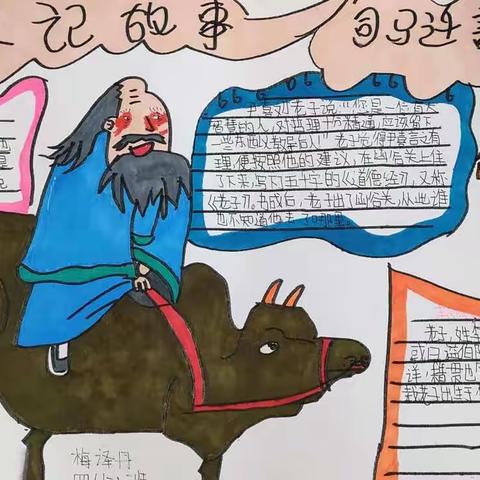 记故事
司马迁
尹喜对老子说:“您是一位有大
智慧的人,对哲理十分精通,应该留下
一些东西以教后人!”老子觉得尹喜言之有
理,便按照他的建议,在函谷关上住
了下来,写下五千字的《道德经》,又称
《老子》。书成后,老子出了函谷关,从此谁
也不知道他去了哪里。
老子,姓
或曰谥伯
详,籍贯也
载老子出生于
梅泽丹